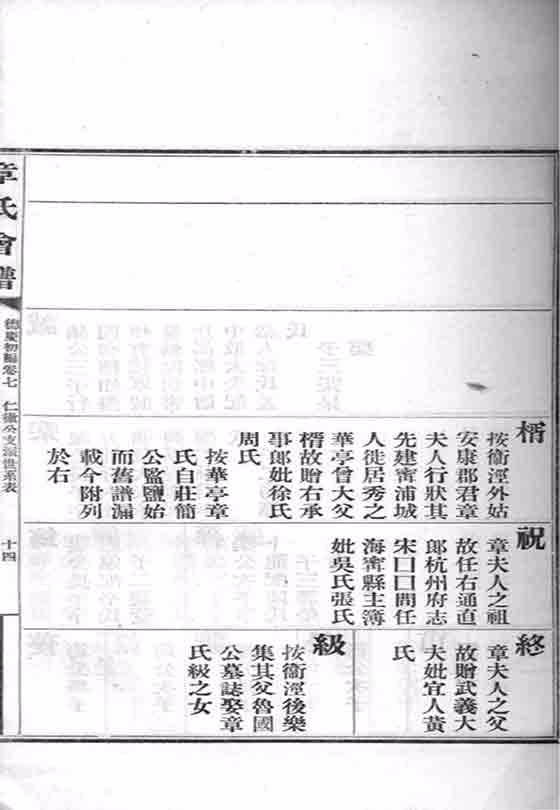 楈
按衞涇外姑
安康郡君章
夫人行狀其
先建甯浦城
人徙居秀之
華亭曾大父
楈故贈右承
事郎妣徐氏
周氏
按華亭章
氏自莊簡
公監鹽始
而舊譜漏
載今附列
於右
祝
章夫人之祖
故任右通直
郎杭州府志
宋口口間任
海甯縣主簿
妣吳氏張氏
終
章夫人之父
故贈武義大
夫妣宜人黃
氏
級
按衞涇後樂
集其父魯國
公墓誌娶章
氏級之女
章氏會譜
德慶初編卷七
仁徹公支派世系表
十四